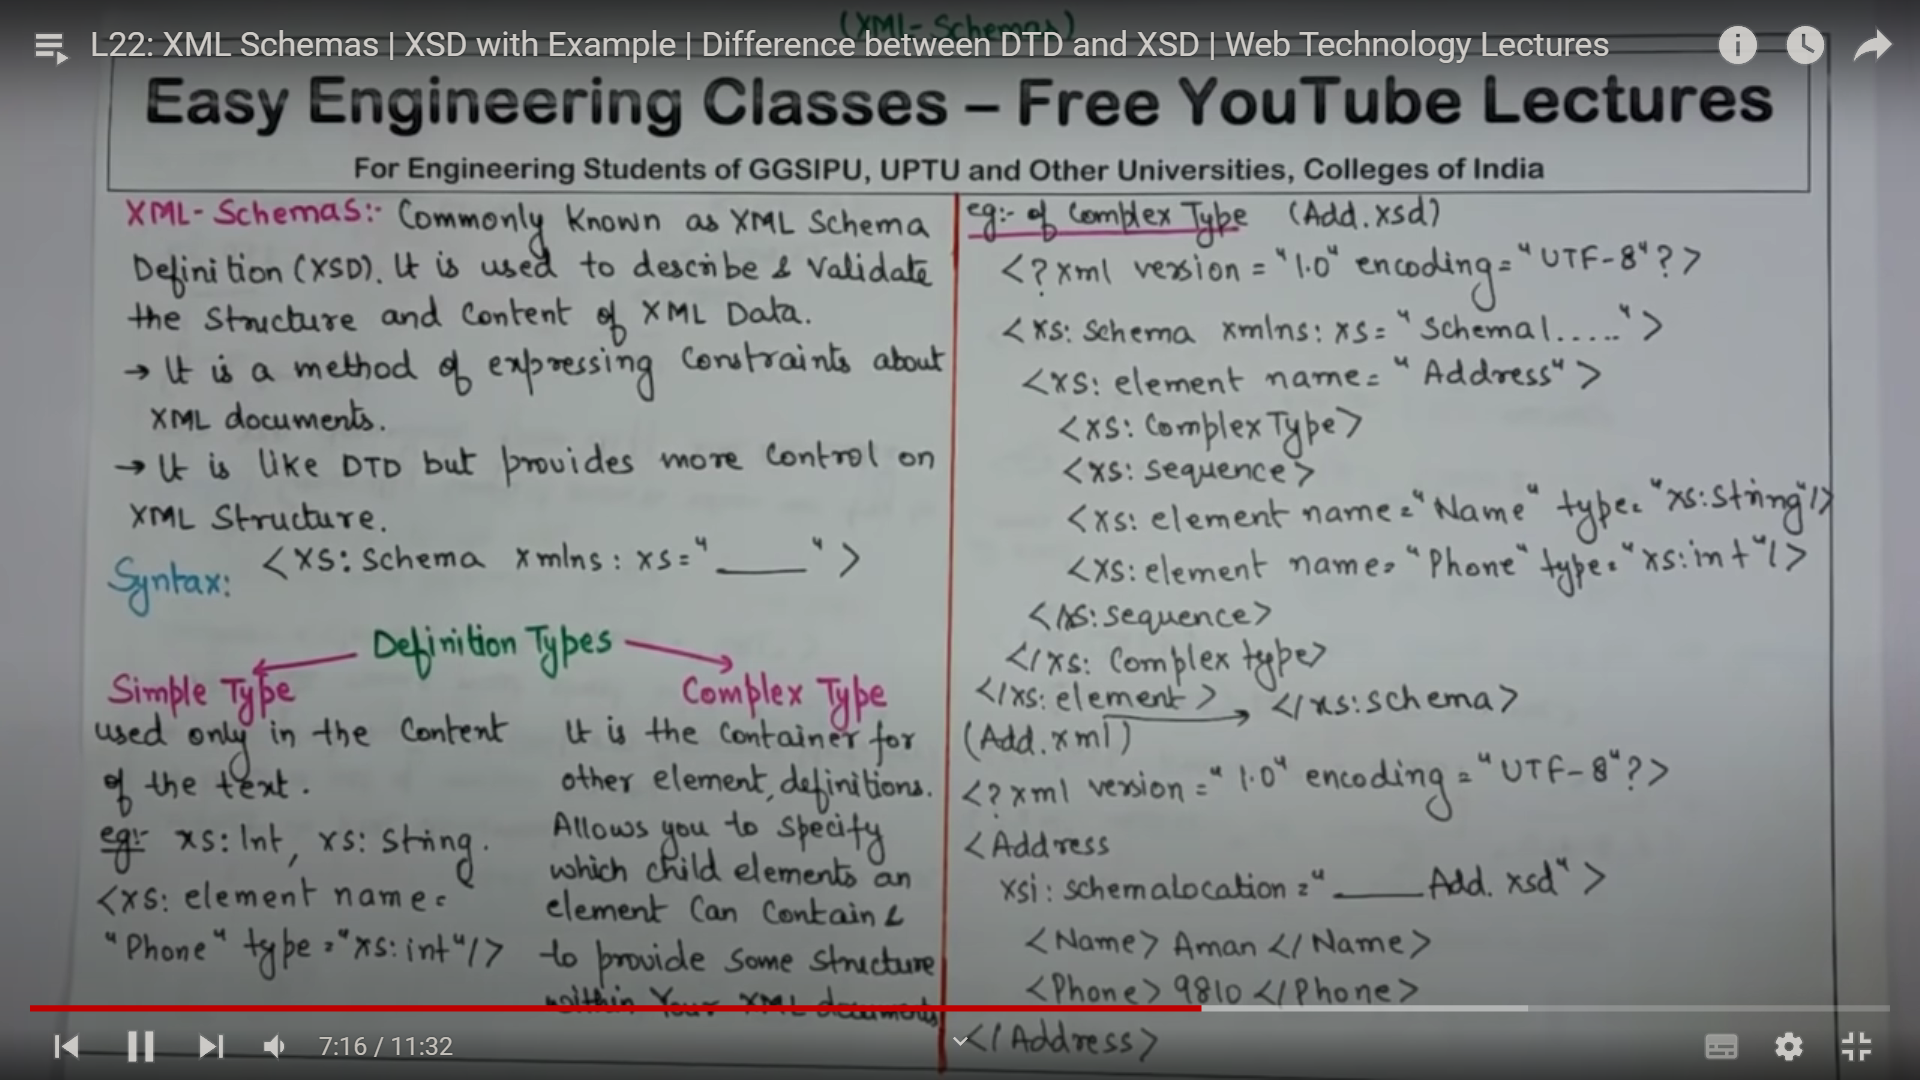 (XML-Schemas)
L22: XML Schemas | XSD with Example | Difference between DTD and XSD | Web Technology Lectures
Easy Engineering Classes – Free YouTube Lectures
For Engineering Students of GGSIPU, UPTU and Other Universities, Colleges of India
XML-Schemas:- Commonly known as XML Schema
Definition (XSD). It is used to describe & validate
the structure and content of XML Data.
→ It is a method of expressing constraints about
XML documents.
→ It is like DTD but provides more control on
XML structure.
Syntax: <xs: schema xmlns: xs="____">
Definition Types
Simple Type
used only in the content
of the text.
eg:- xs: Int, xs: string.
<xs: element name=
"Phone" type="xs:int"/>
Complex Type
It is the container for
other element, definitions.
Allows you to specify
which child elements an
element can contain &
to provide some structure
within your XML documents
eg:- of Complex Type (Add.xsd)
<?xml version = "1.0" encoding="UTF-8"?>
<xs: schema xmlns: xs= "Schemal.....">
<xs: element name= "Address">
<xs: ComplexType>
<xs: sequence>
<xs: element name="Name" type="xs:string"/>
<xs: element name="Phone" type="xs:int"/>
</xs:sequence>
</xs: Complex type>
</xs: element> → </xs:schema>
(Add.xml)
<?xml version="1.0" encoding="UTF-8"?>
<Address
xsi: schemalocation="____Add.xsd">
<Name> Aman </Name>
<Phone> 9810 </Phone>
</Address>
7:16 / 11:32